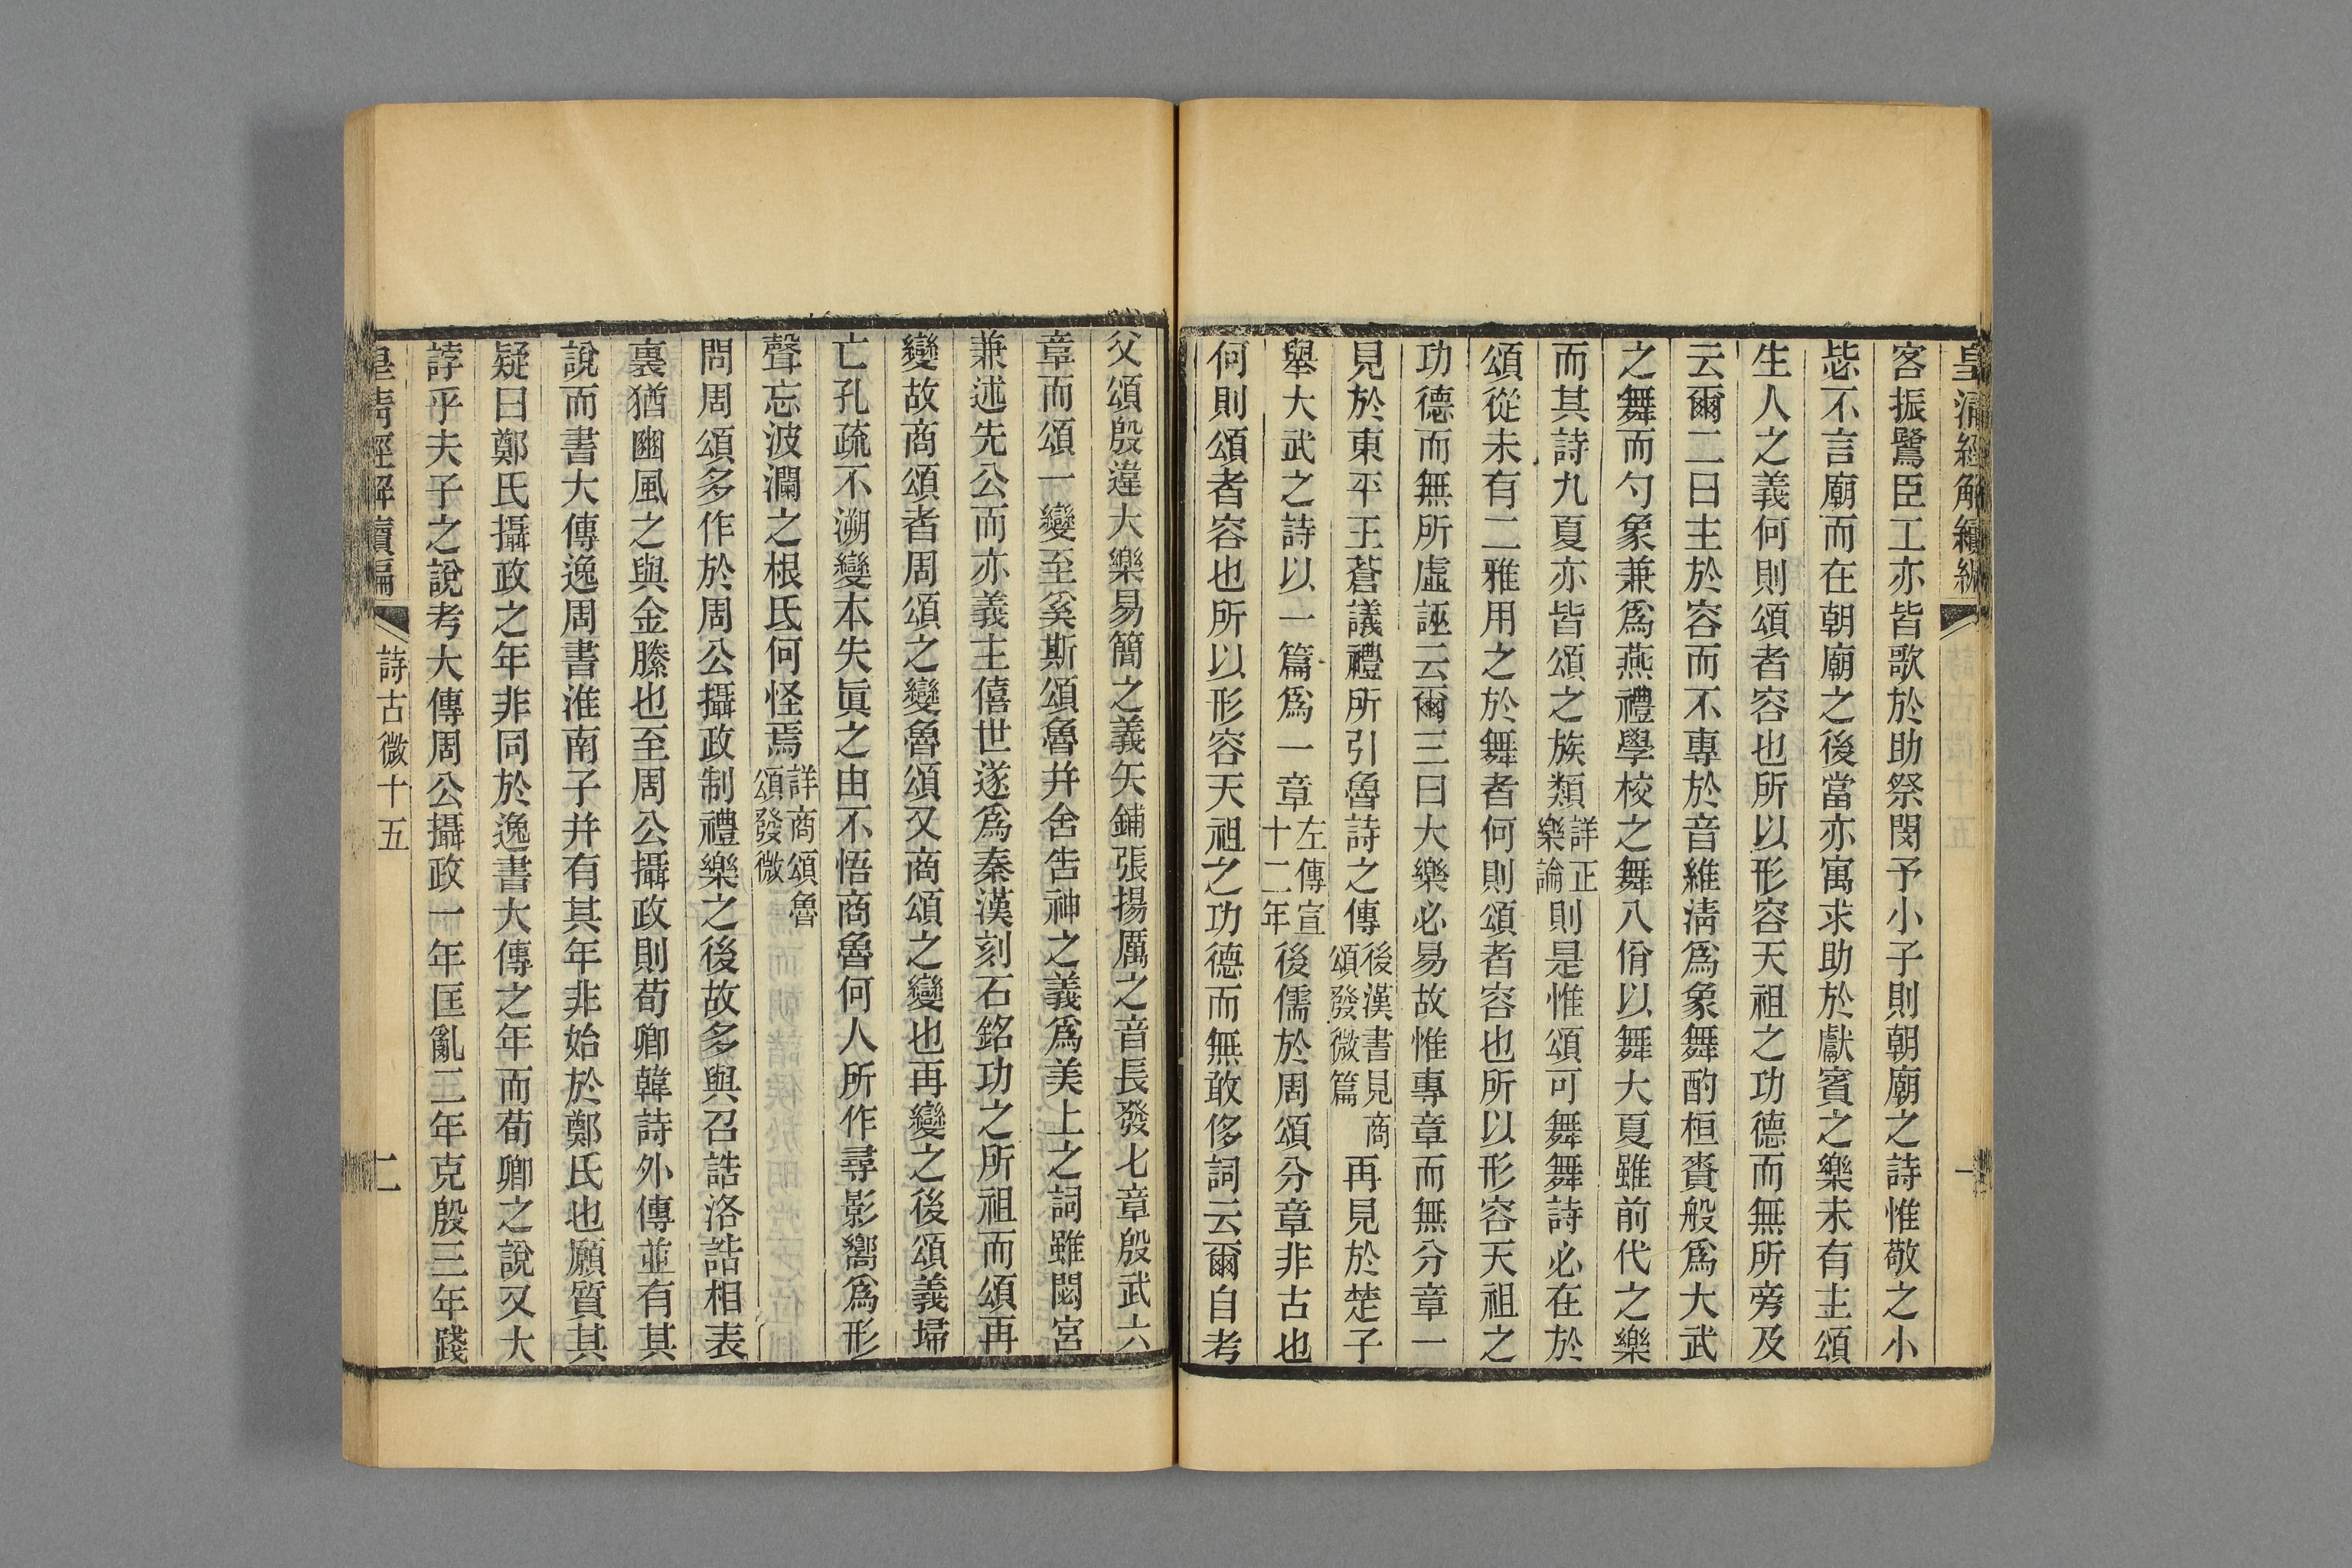 皇清經解續編
一
客振鷺臣工亦皆歌於助祭閔予小子則朝廟之詩惟敬之小
毖不言廟而在朝廟之後當亦寓求助於獻賓之樂未有主頌
生人之義何則頌者容也所以形容天祖之功德而無所旁及
云爾二曰主於容而不專於音維淸爲象舞酌桓賚般爲大武
之舞而勺象兼爲燕禮學校之舞八佾以舞大夏雖前代之樂
而其詩九夏亦皆頌之族類詳正樂論則是惟頌可舞舞詩必在於
頌從未有二雅用之於舞者何則頌者容也所以形容天祖之
功德而無所虛誣云爾三曰大樂必易故惟專章而無分章一
見於東平王蒼議禮所引魯詩之傳後漢書見商頌發微篇再見於楚子
舉大武之詩以一篇爲一章左傳宣十二年後儒於周頌分章非古也
何則頌者容也所以形容天祖之功德而無敢侈詞云爾自考
父頌殷違大樂易簡之義矢鋪張揚厲之音長發七章殷武六
章而頌一變至奚斯頌魯并舍告神之義爲美上之詞雖閟宮
兼述先公而亦義主僖世遂爲秦漢刻石銘功之所祖而頌再
變故商頌者周頌之變魯頌又商頌之變也再變之後頌義埽
亡孔疏不溯變本失眞之由不悟商魯何人所作尋影嚮爲形
聲忘波瀾之根氐何怪焉詳商頌魯頌發微
問周頌多作於周公攝政制禮樂之後故多與召誥洛誥相表
裏猶豳風之與金縢也至周公攝政則荀卿韓詩外傳並有其
說而書大傳逸周書淮南子并有其年非始於鄭氏也願質其
疑曰鄭氏攝政之年非同於逸書大傳之年而荀卿之說又大
誖乎夫子之說考大傳周公攝政一年匡亂二年克殷三年踐
皇清經解續編
詩古微十五
二